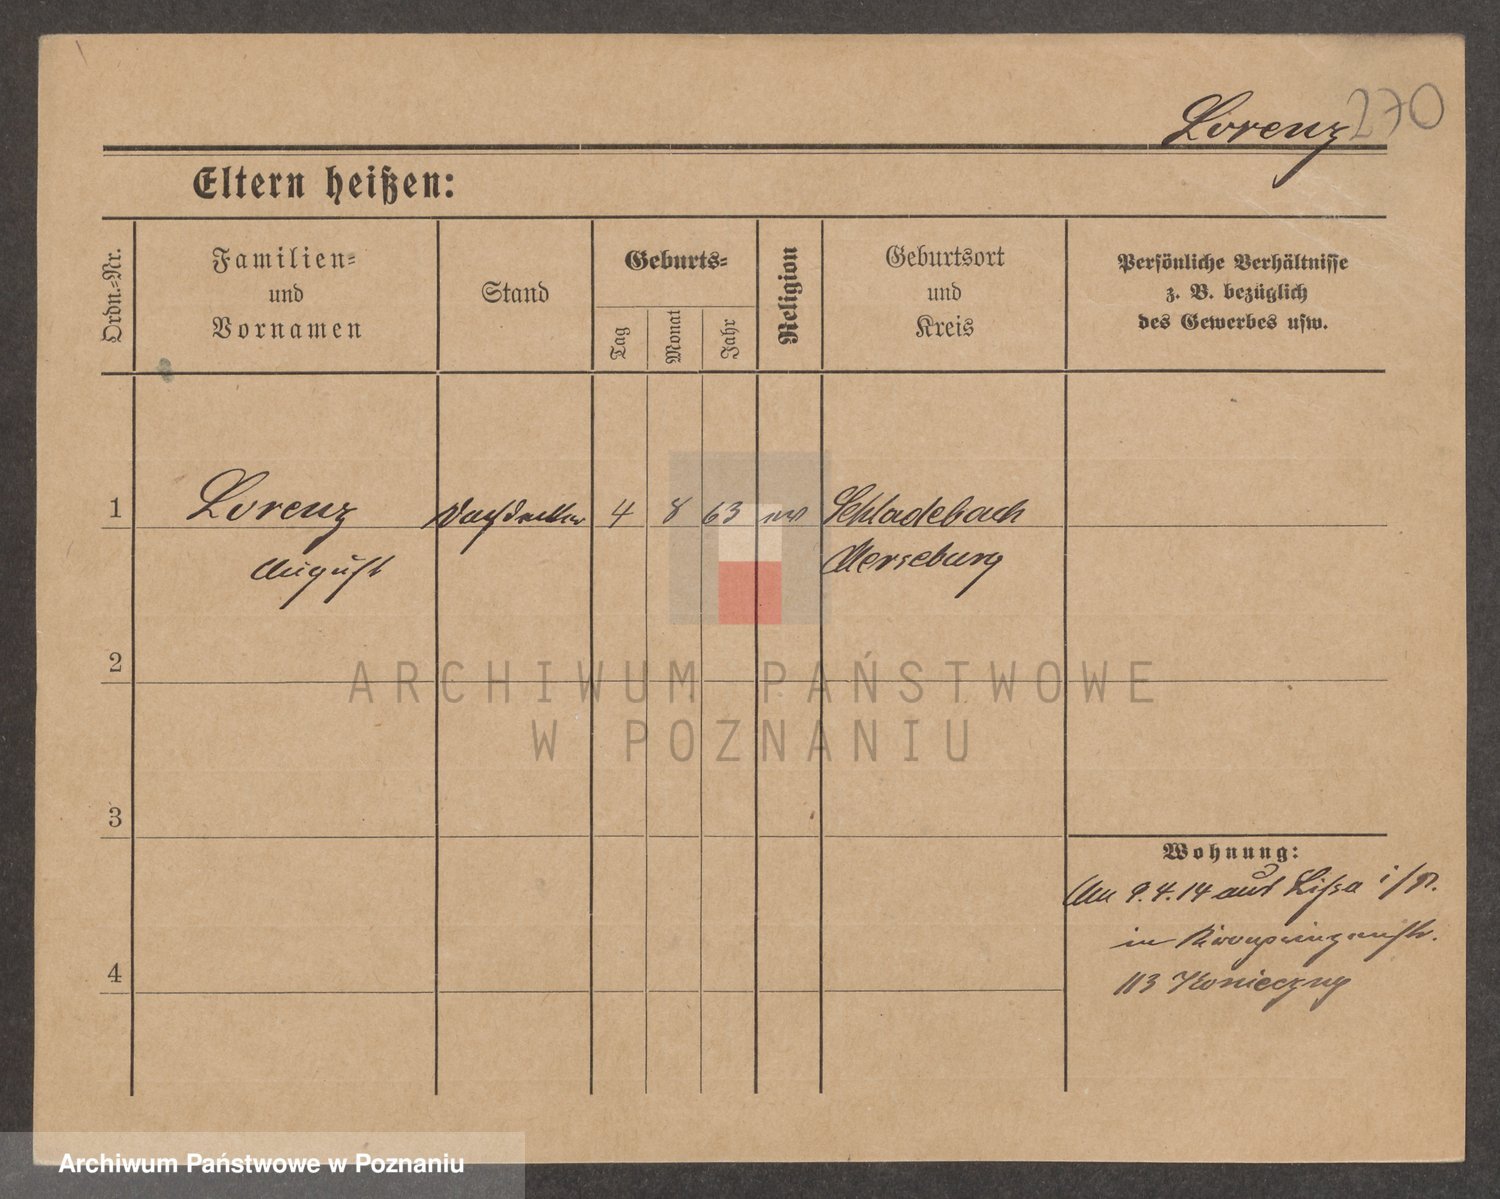 270
Lorenz
Eltern heißen:
Ordn.-Nr.
Familien-
und
Vornamen
Stand
Geburts-
Tag
Monat
Jahr
Religion
Geburtsort
und
Kreis
Persönliche Verhältnisse
z. B. bezüglich
des Gewerbes usw.
1
Lorenz
Dachdecker
4
8
63
ev
Schladebach
August
Merseburg
2
ARCHIWUM PAŃSTWOWE
W POZNANIU
3
Wohnung:
An 9.4.14 aus Lissa i/P.
in Kronprinzenstr.
113 Konieczny
4
Archiwum Państwowe w Poznaniu